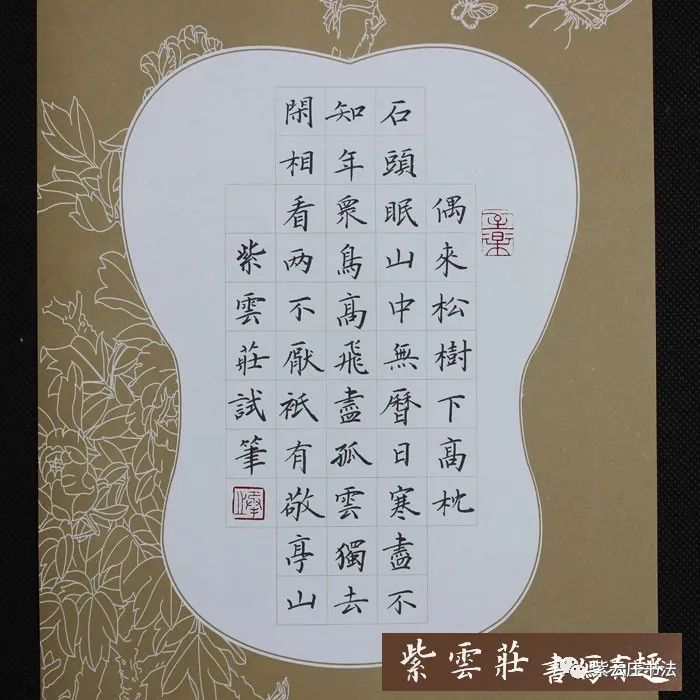 偶來松樹下高枕
石頭眠山中無曆日寒盡不
知年眾鳥高飛盡孤雲獨去
閑相看两不厭衹有敬亭山
紫雲莊試筆
紫雲莊 書写有趣
紫云庄书法